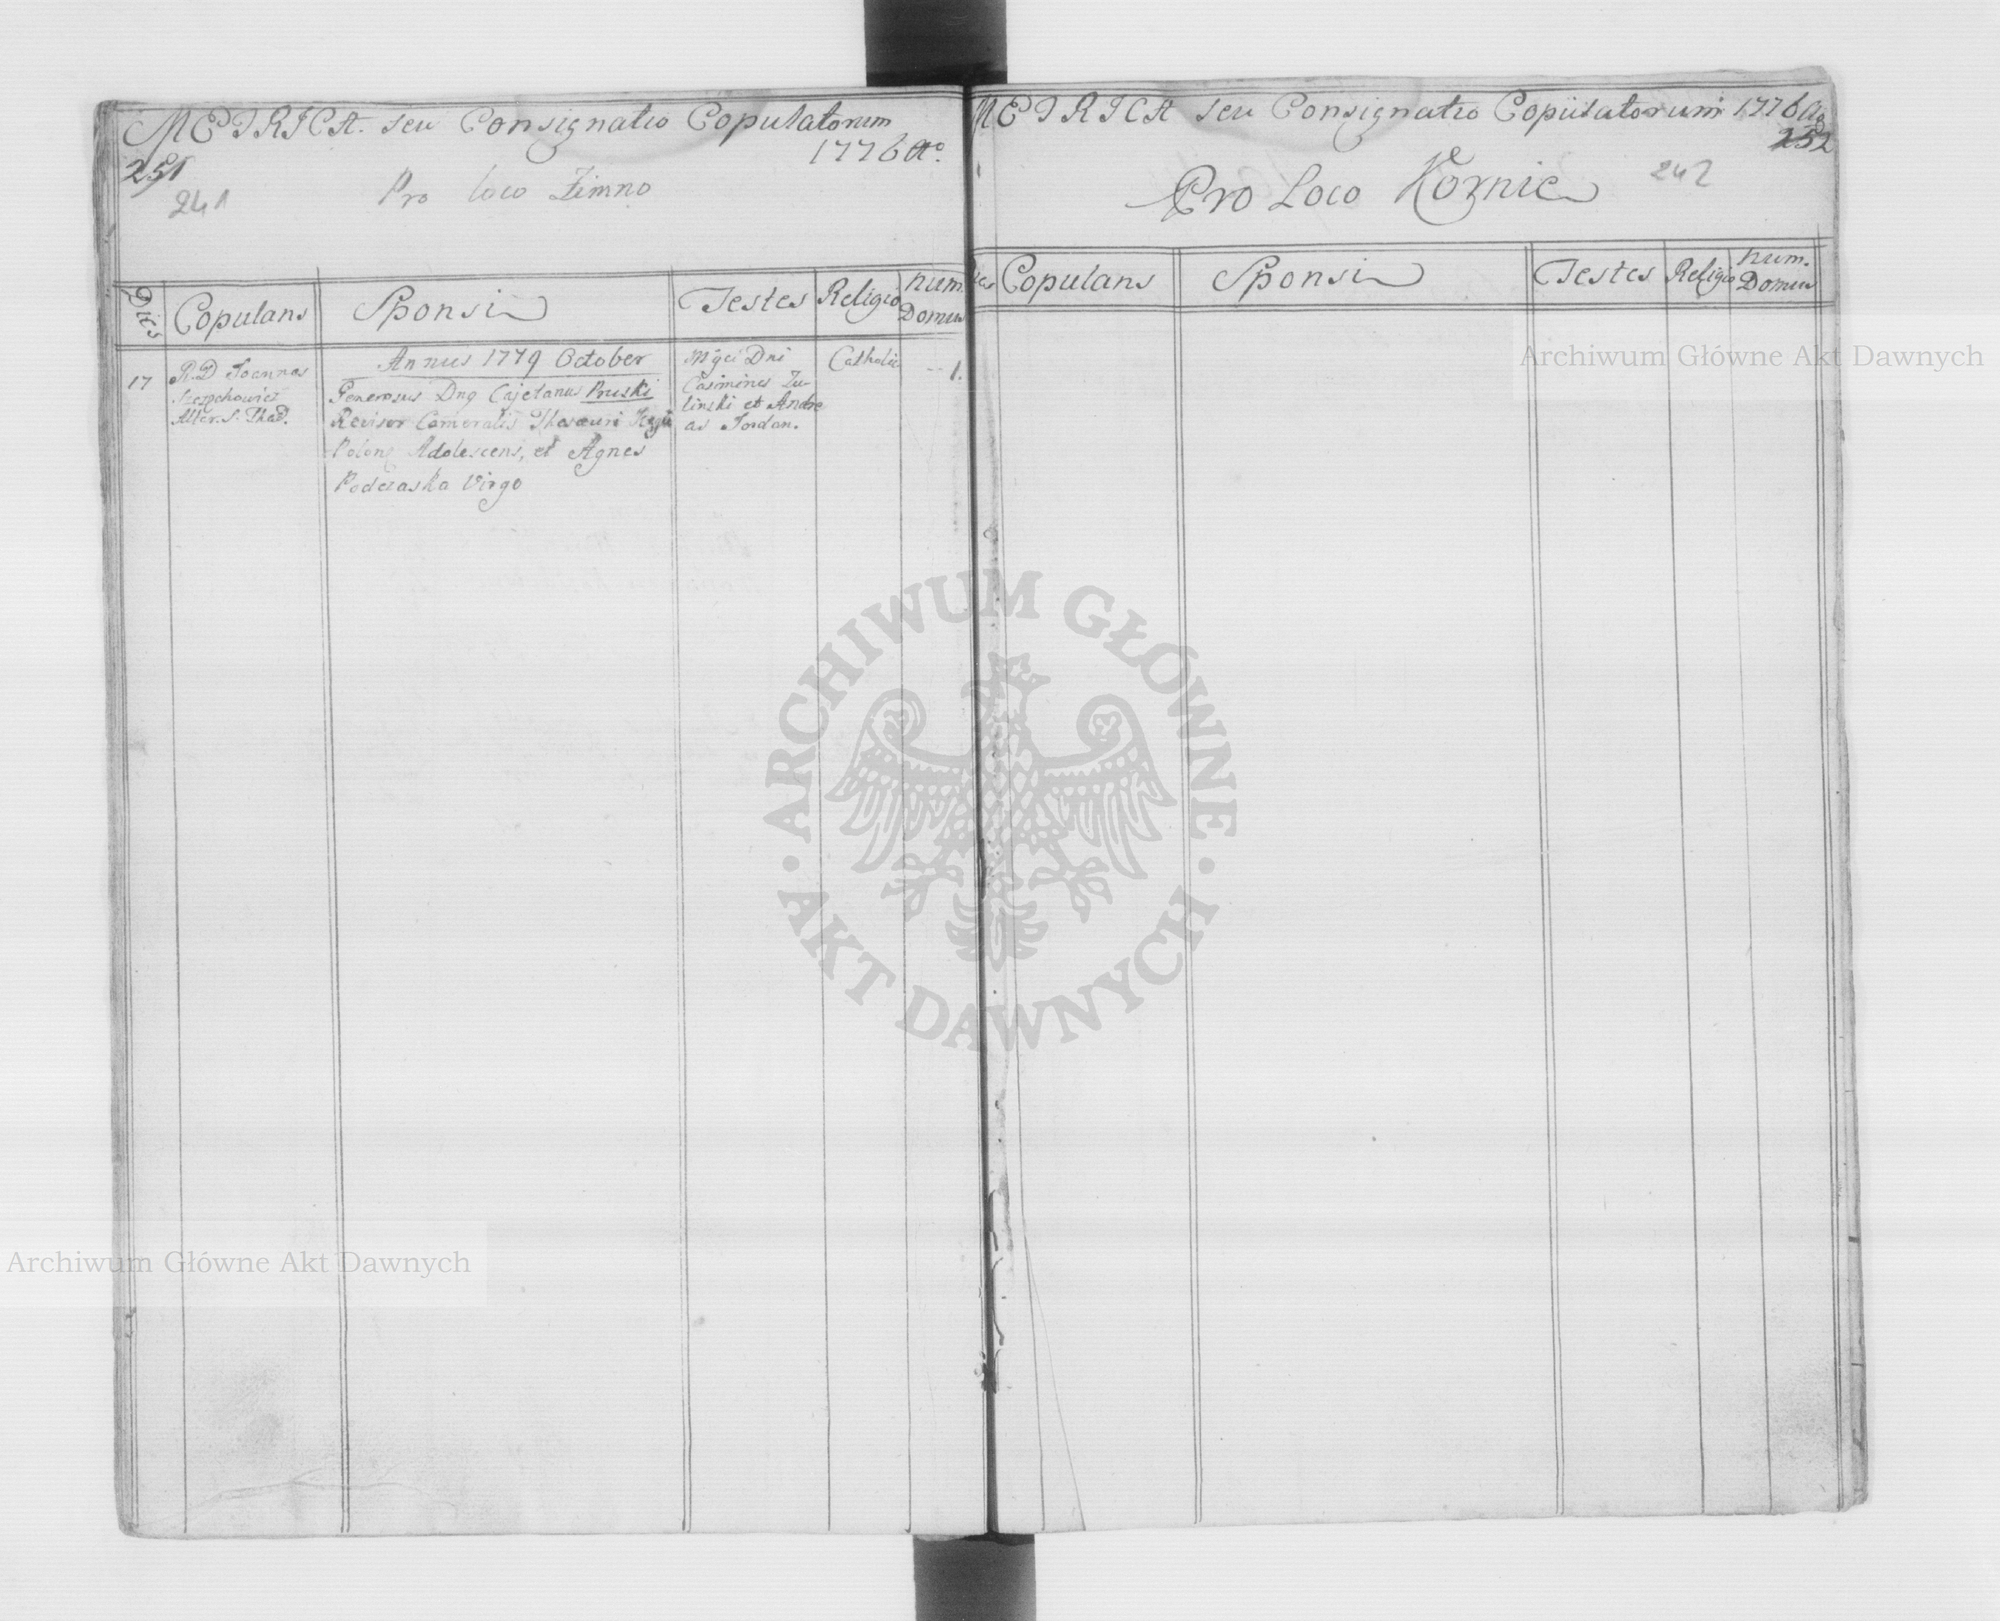 METRICA. seu Consignatio Copulatorum
1776 Aº.
251
241
Pro Loco Zimno
Dies
Copulans
Sponsi
Testes
Religio
Num.
Domus
Annus 1779 October
17
R.D Joannes
Szepchowicz
Alter. S. Thad.
Generosus Dnq Cajetanus Pruski
Revisor Cameralis Thesauri Regii
Polonę Adolescens, et Agnes
Podczaska Virgo
Mgci Dni
Casimirus Zu-
linski et Andre
as Jordan.
Catholic
1.
METRICA seu Consignatio Copulatorum 1776 Aº
252
242
Pro Loco Kornie
Dies
Copulans
Sponsi
Testes
Religio
Num.
Domus
Archiwum Główne Akt Dawnych
ARCHIWUM GŁÓWNE
AKT DAWNYCH
Archiwum Główne Akt Dawnych